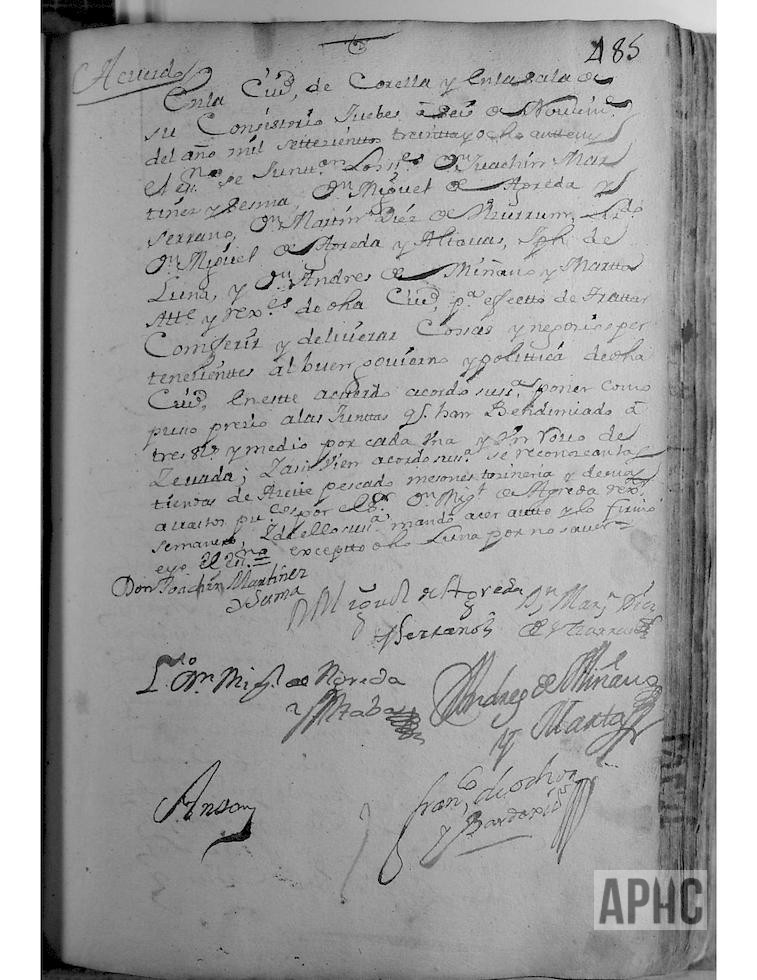 485
Acuerdo
En la Ciud, de Corella y en la sala de
su Consistorio Juebes a seis de Noviem.e
del año mil settecienttos treintta y ocho antte mi
el ess.no se Juntt.on Los ss.es D.n Juachin Mar
tinez y Sesma, D.n Miguel de Agreda y
Serrano, D.n Martin Diez de 
D.n Miguel de Agreda y Altauas, Jph de
Luna, y D.n Andres de Miñano y Martta
Alle y rex.es de dha Ciud, p.a effectto de Trattar
Comferir y deliuerar Cossas y negocios per
tenecienttes al buen gouierno y polittica de dha
Ciud, en estte acuerdo acordo su ss.a poner como
puso precio a las Junttas q.e han Bendimiado a
tres Rs. y medio por cada Una y Un Rouo de
Zeuada; Y assi vien acordo su ss.a se reconozcan las
tiendas de Aceite pescado mesones tocineria y demas
auastos pu.cos por el s.or D.n Mig.l de Agreda rex.r
semanero, Y de ello su ss.a mando acer autto y lo firmo
eyo el ess.no exceptto dho Luna por no sauer =
Don Joachin Martinez
y Sesma
D.n Miguel de Agreda
y Serrano
D.n Mar.n Diez
de
L.do D.n Mig.l de Agreda
y Altabas
Andres de Miñano
y Marta
Antt.o my
Fran.co de ochoa
y
APHC